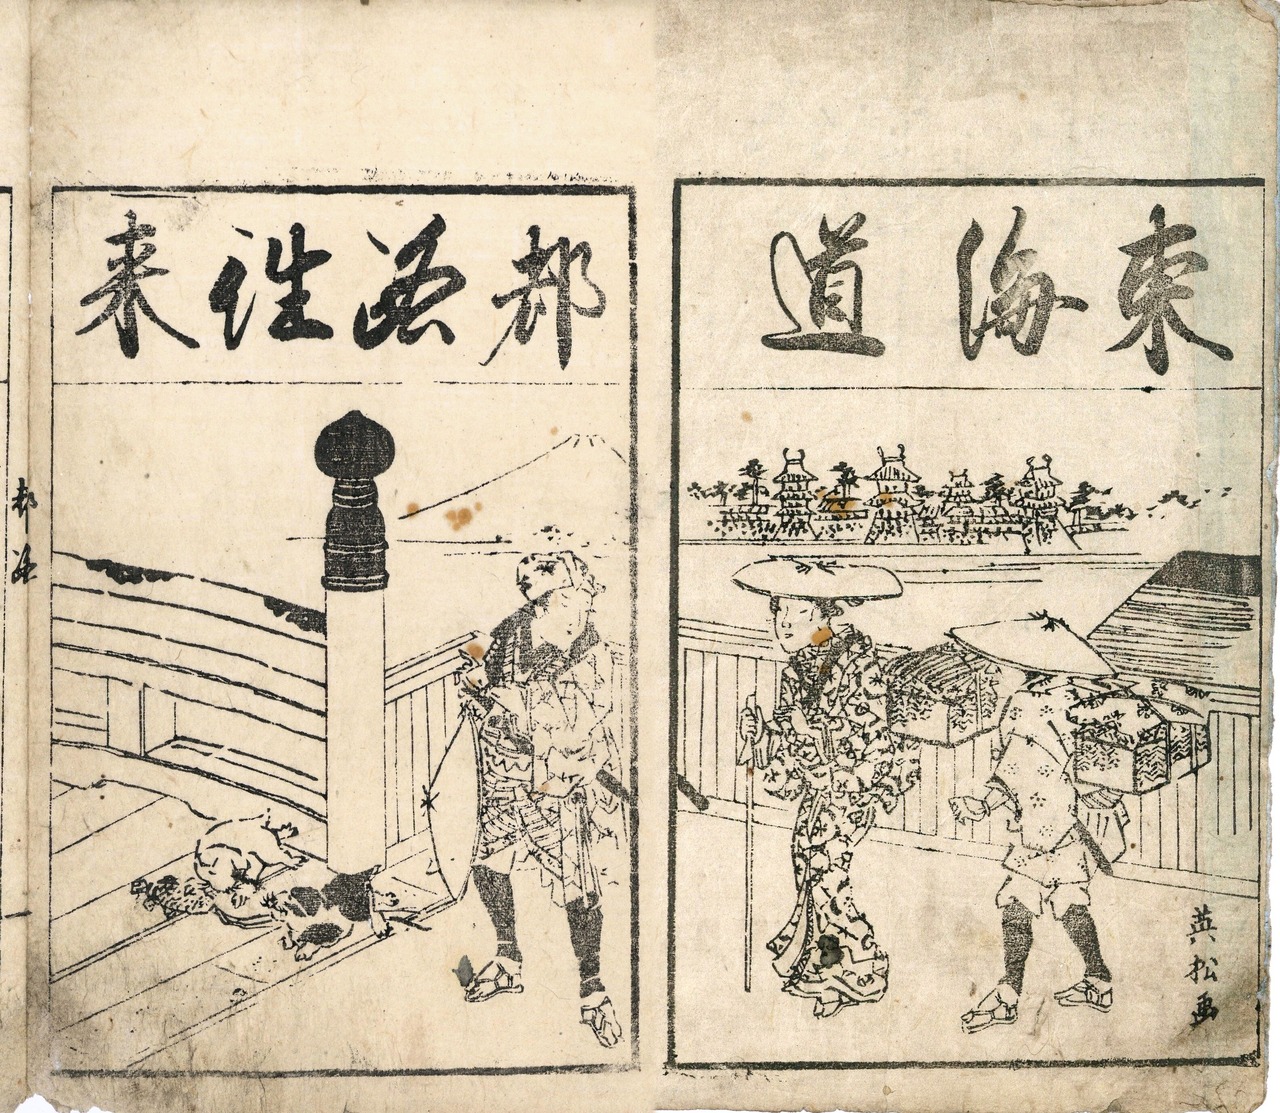 東海道
都路徃来
英松画
都路